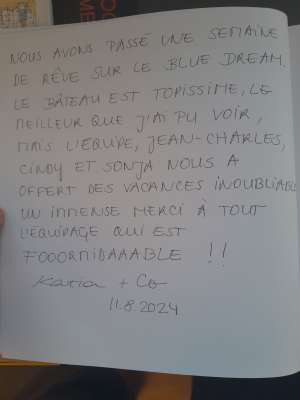 NOUS AVONS PASSÉ UNE SEMAINE
DE RÊVE SUR LE BLUE DREAM.
LE BÂTEAU EST TOPISSIME, LE
MEILLEUR QUE J'AI PU VOIR,
MAIS L'EQUIPE, JEAN-CHARLES,
CINDY ET SONJA NOUS A
OFFERT DES VACANCES INOUBLIABLE
UN IMMENSE MERCI À TOUT
L'EQUIPAGE QUI EST
FOOORMIDAAAABLE !!
Katia + Co
11.8.2024